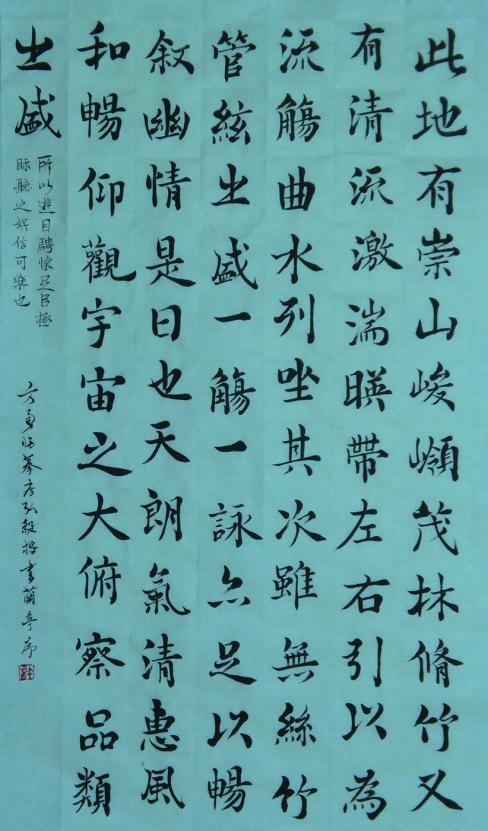 此地有崇山峻嶺茂林脩竹又
有清流激湍暎帶左右引以為
流觴曲水列坐其次雖無絲竹
管絃之盛一觴一詠亦足以暢
敘幽情是日也天朗氣清惠風
和暢仰觀宇宙之大俯察品類
之盛
所以遊目騁懷足以極
視聽之娛信可樂也
方勇臨摹弘毅楷書蘭亭序